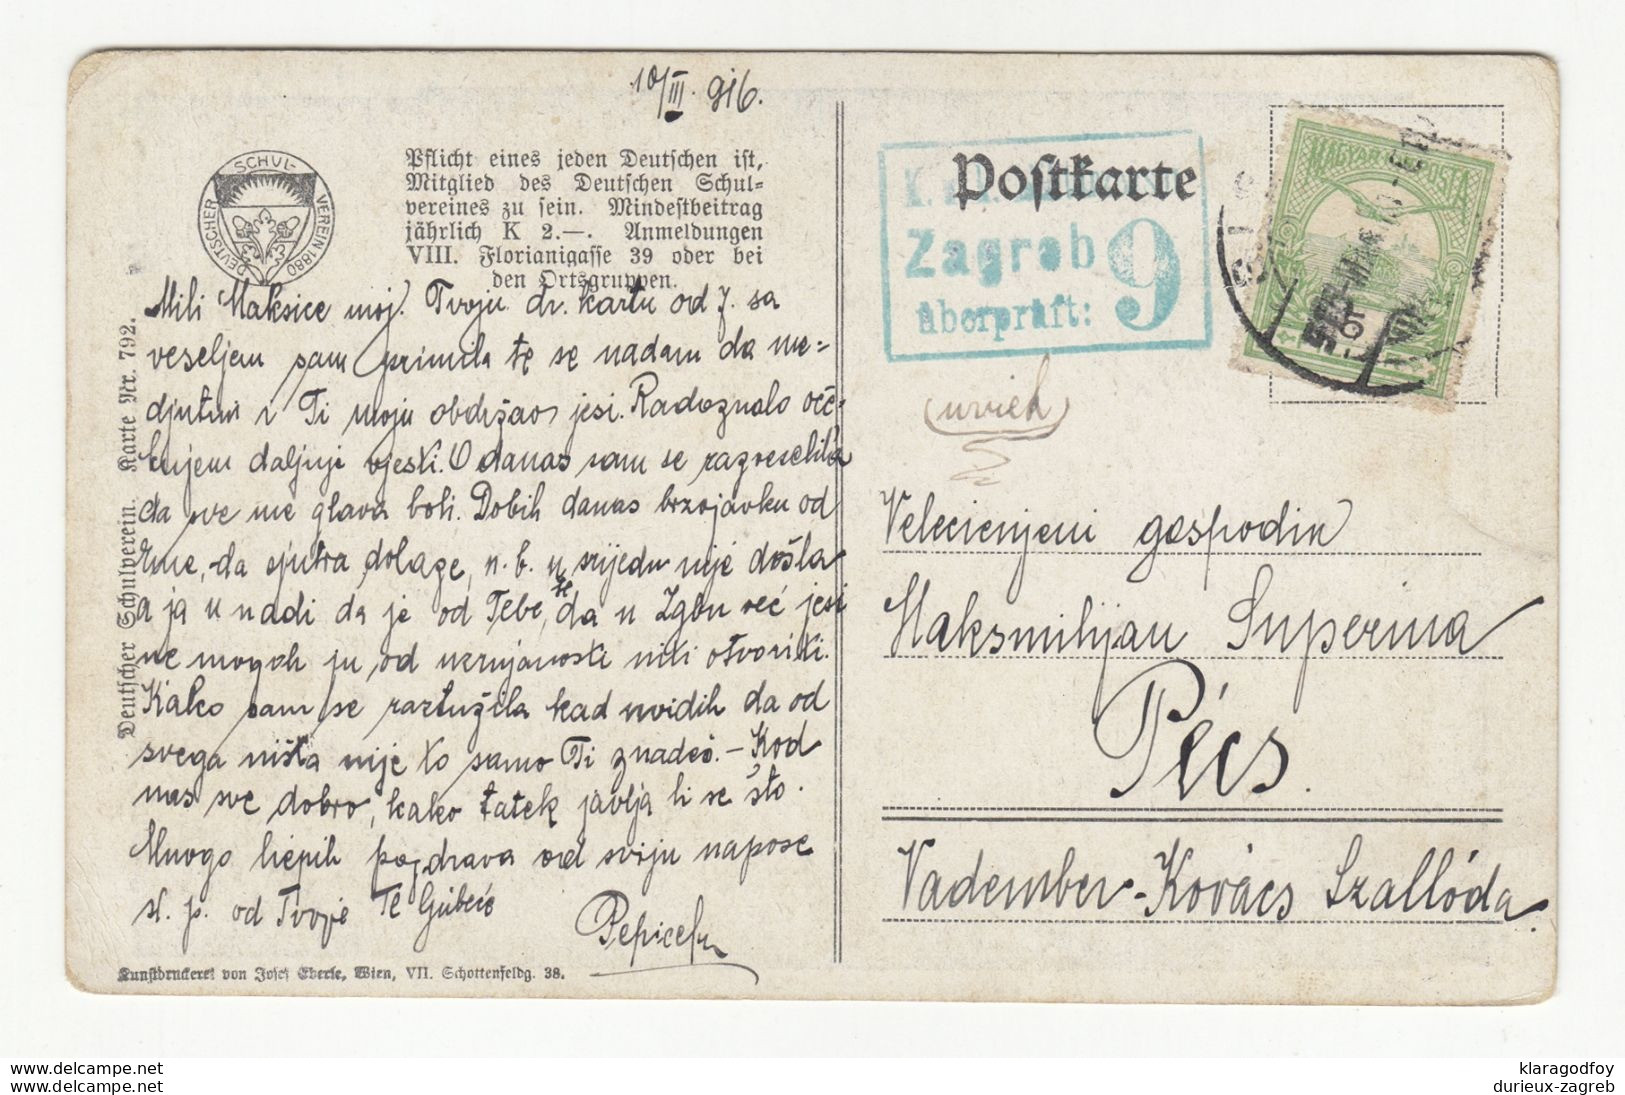 10/III. 916.
DEUTSCHER SCHUL-VEREIN 1880
Pflicht eines jeden Deutschen ist,
Mitglied des Deutschen Schul=
vereines zu sein. Mindestbeitrag
jährlich K 2.—. Anmeldungen
VIII. Florianigasse 39 oder bei
den Ortsgruppen.
Deutscher Schulverein. Karte Nr. 792.
Mili Maksice moj. Tvoju dr. kartu od 7. sa
veseljem sam primila te se nadam da me=
djutim i Ti moju obdržao jesi. Radoznalo oče-
kujem daljnje vjesti. O danas sam se razveselila
da sve me glava boli. Dobih danas brzojavku od
da sjutra dolaze, n. b. u srijedu nije došla
a ja u nadi da je od Tebe, te da u Zgbu već jesi
ne mogoh ju od nerujanosti niti otvoriti.
Kako sam se raztužila kad uvidih da od
svega ništa nije to samo Ti znadeš. – Kod
nas sve dobro, kako tatek javlja li se što.
Mnogo liepih pozdrava od sviju napose
st. p. od Tvoje Te ljubeće
Kunstdruckerei von Josef Eberle, Wien, VII. Schottenfeldg. 38.
Postkarte
Zagreb 9
überprüft:
MAGYAR KIR. POSTA
Velecienjeni gospodin
Maksmilijan Superina
Pécs.
Vadember-Kovács Szallóda.
klaragodfoy
durieux-zagreb
www.delcampe.net
www.delcampe.net